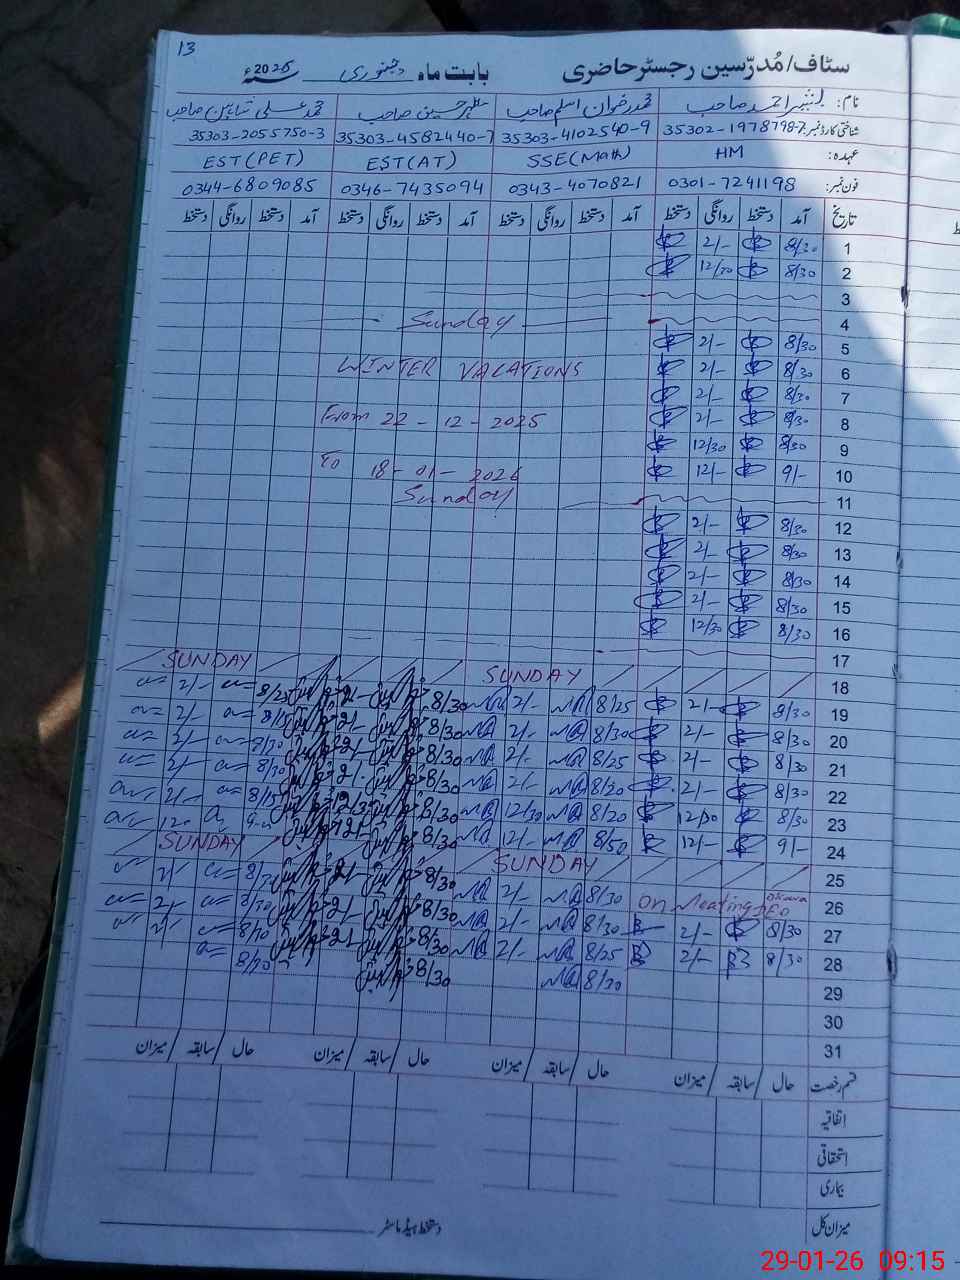 13
سٹاف/مُدرّسین رجسٹر حاضری بابت ماہ جنوری 2026ء
نام: بشیر احمد صاحب محمد رضوان اسلم صاحب طاہر حسین صاحب محمد علی شاہین صاحب
شناختی کارڈ نمبر: 35302-1978798-7 35303-4102540-9 35303-4582440-7 35303-2055750-3
عہدہ: HM SSE(Math) EST(AT) EST(PET)
فون نمبر: 0301-7241198 0343-4070821 0346-7435094 0344-6809085
تاریخ آمد دستخط روانگی دستخط آمد دستخط روانگی دستخط آمد دستخط روانگی دستخط آمد دستخط روانگی دستخط
1 8/30 2/-
2 8/30 12/30
3
4 Sunday
5 8/30 2/-
6 8/30 2/- WINTER VACATIONS
7 8/30 2/-
8 8/30 2/- From 22-12-2025
9 8/30 12/30
10 9/- 12/- To 18-01-2026
11 Sunday
12 8/30 2/-
13 8/30 2/-
14 8/30 2/-
15 8/30 2/-
16 8/30 12/30
17
18 SUNDAY SUNDAY
19 8/30 2/- 8/25 2/- 8/30 2/- 8/25 2/-
20 8/30 2/- 8/30 2/- 8/30 2/- 2/-
21 8/30 2/- 8/25 2/- 8/30 2/- 8/30 2/-
22 8/30 2/- 2/- 8/30 2/- 8/30 2/-
23 8/30 8/20 12/30 8/30 2/-
24 9/- 12/- 8/50 12/- 8/30
25 SUNDAY SUNDAY
26 On Meating DEO Okara 8/30 2/- 8/30 2/-
27 8/30 2/- 8/30 2/- 8/30 2/- 2/-
28 8/30 2/- 8/25 2/- 8/30 2/-
29 8/30
30
31
قسم رخصت حال سابقہ میزان حال سابقہ میزان حال سابقہ میزان حال سابقہ میزان
اتفاقیہ
استحقاقی
بیماری
میزان کل
دستخط ہیڈ ماسٹر
29-01-26 09:15